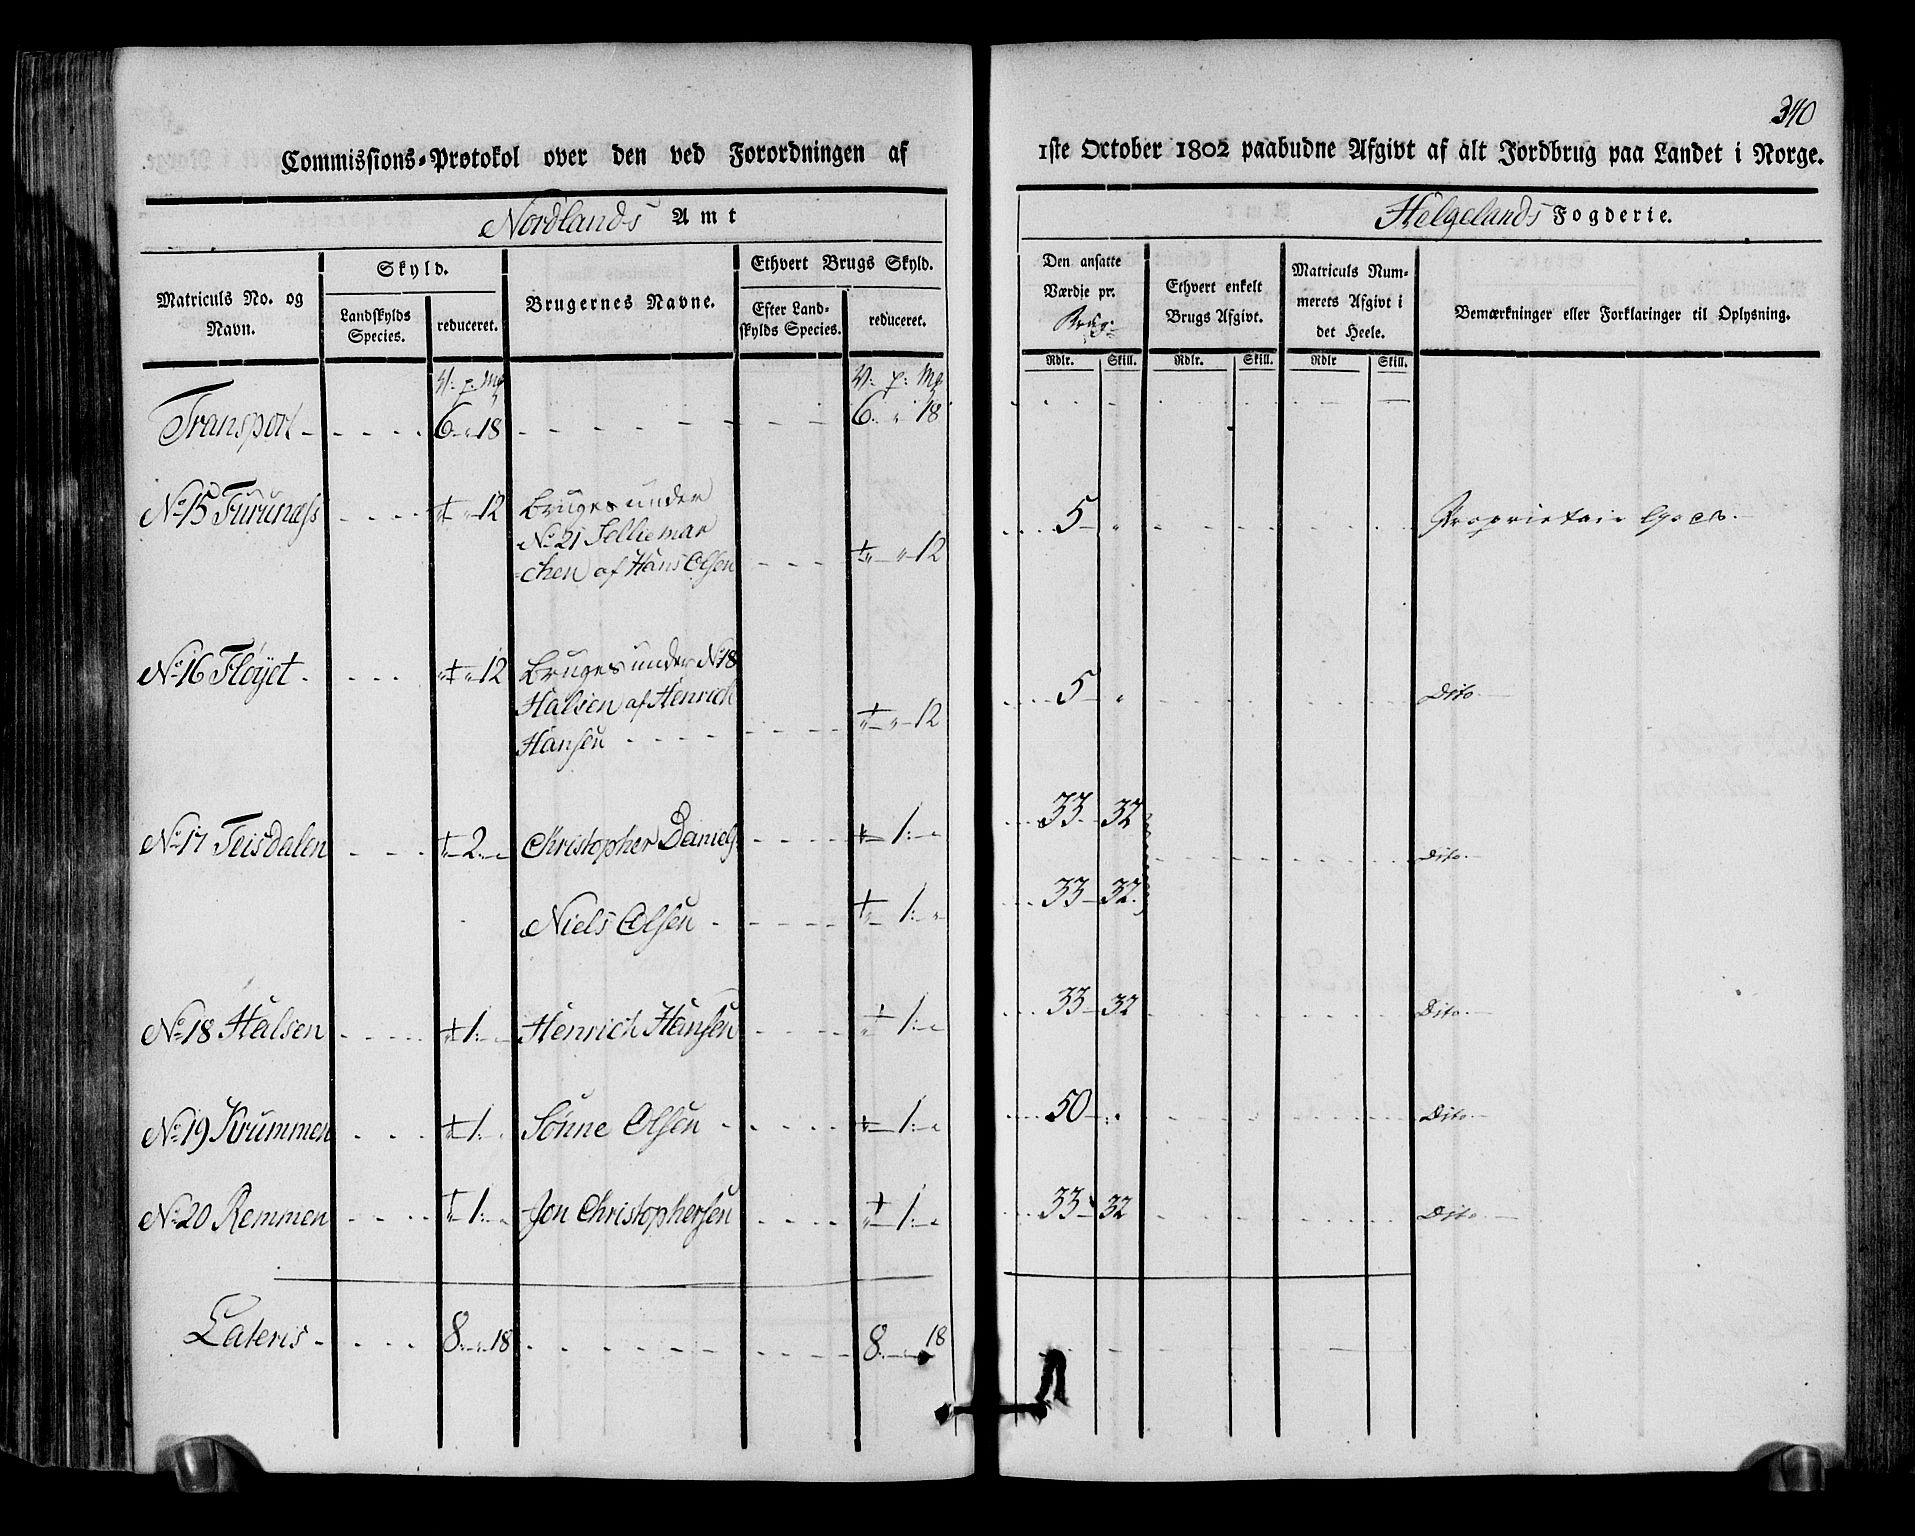 340
Commissions-Protokol over den ved Forordningen af 1ste October 1802 paabudne Afgivt af alt Jordbrug paa Landet i Norge.
Nordlands Amt Helgelands Fogderie.
Matriculs No. og Navn. Skyld. Landskylds Species. reduceret. Brugernes Navne. Ethvert Brugs Skyld. Efter Landskylds Species. reduceret. Den ansatte Værdie pr. Brug. Ethvert enkelt Brugs Afgivt. Matriculs Nummerets Afgivt i det Heele. Bemærkninger eller Forklaringer til Oplysning.
Rdlr. Skill. Rdlr. Skill. Rdlr Skill.
V: p: Mk V: p: Mk
Transport 6 " 18 6 " 18
No 15 Furunæss " " 12 Bruges under
No 21 Selliemar
chen af Hans Olsen " " 12 5 " Proprietair Goes
No 16 Fløyet " " 12 Bruges under No 18
Halsen af Henrich
Hansen " " 12 5 " Dito
No 17 Teisdalen " 2 " Christopher Daniels " 1 " 33 32 Dito
Niels Olsen " 1 " 33 32
No 18 Halsen " 1 " Henrich Hansen " 1 " 33 32 Dito
No 19 Krummen " 1 " Sønne Olsen " 1 " 50 " Dito
No 20 Remmen " 1 " Jon Christophersen " 1 " 33 32 Dito
Lateris 8 " 18 8 " 18